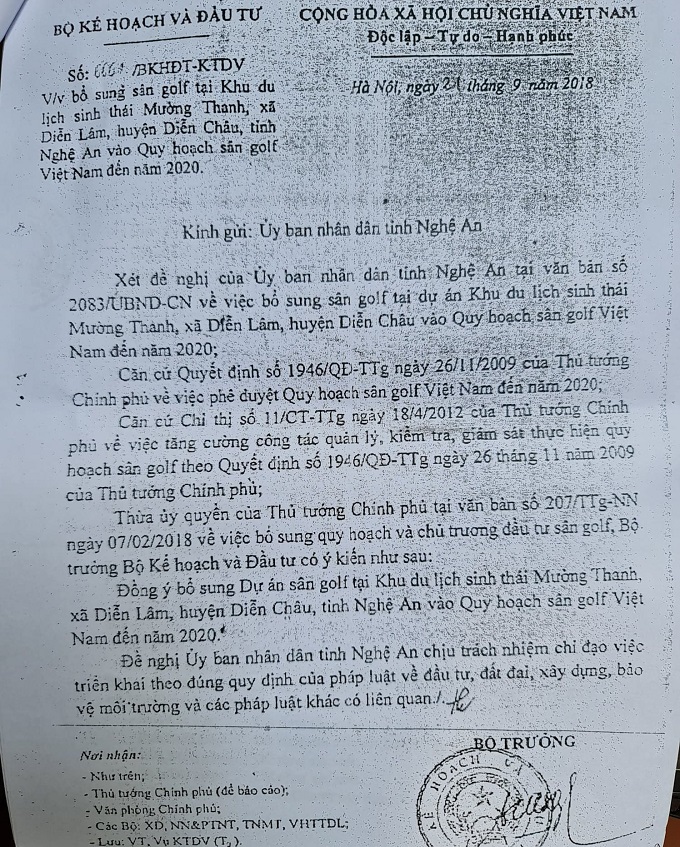 BỘ KẾ HOẠCH VÀ ĐẦU TƯ
CỘNG HÒA XÃ HỘI CHỦ NGHĨA VIỆT NAM
Độc lập – Tự do – Hạnh phúc
Số: /BKHĐT-KTDV
V/v bổ sung sân golf tại Khu du
lịch sinh thái Mường Thanh, xã
Diễn Lâm, huyện Diễn Châu, tỉnh
Nghệ An vào Quy hoạch sân golf
Việt Nam đến năm 2020.
Hà Nội, ngày 21 tháng 9 năm 2018
Kính gửi: Ủy ban nhân dân tỉnh Nghệ An
Xét đề nghị của Ủy ban nhân dân tỉnh Nghệ An tại văn bản số
2083/UBND-CN về việc bổ sung sân golf tại dự án Khu du lịch sinh thái
Mường Thanh, xã Diễn Lâm, huyện Diễn Châu vào Quy hoạch sân golf Việt
Nam đến năm 2020;
Căn cứ Quyết định số 1946/QĐ-TTg ngày 26/11/2009 của Thủ tướng
Chính phủ về việc phê duyệt Quy hoạch sân golf Việt Nam đến năm 2020;
Căn cứ Chỉ thị số 11/CT-TTg ngày 18/4/2012 của Thủ tướng Chính
phủ về việc tăng cường công tác quản lý, kiểm tra, giám sát thực hiện quy
hoạch sân golf theo Quyết định số 1946/QĐ-TTg ngày 26 tháng 11 năm 2009
của Thủ tướng Chính phủ;
Thừa ủy quyền của Thủ tướng Chính phủ tại văn bản số 207/TTg-NN
ngày 07/02/2018 về việc bổ sung quy hoạch và chủ trương đầu tư sân golf, Bộ
trưởng Bộ Kế hoạch và Đầu tư có ý kiến như sau:
Đồng ý bổ sung Dự án sân golf tại Khu du lịch sinh thái Mường Thanh,
xã Diễn Lâm, huyện Diễn Châu, tỉnh Nghệ An vào Quy hoạch sân golf Việt
Nam đến năm 2020.
Đề nghị Ủy ban nhân dân tỉnh Nghệ An chịu trách nhiệm chỉ đạo việc
triển khai theo đúng quy định của pháp luật về đầu tư, đất đai, xây dựng, bảo
vệ môi trường và các pháp luật khác có liên quan./.
Nơi nhận:
- Như trên;
- Thủ tướng Chính phủ (để báo cáo);
- Văn phòng Chính phủ;
- Các Bộ: XD, NN&PTNT, TNMT, VHTTDL;
- Lưu: VT, Vụ KTDV (T ).
BỘ TRƯỞNG
KẾ HOẠCH VÀ